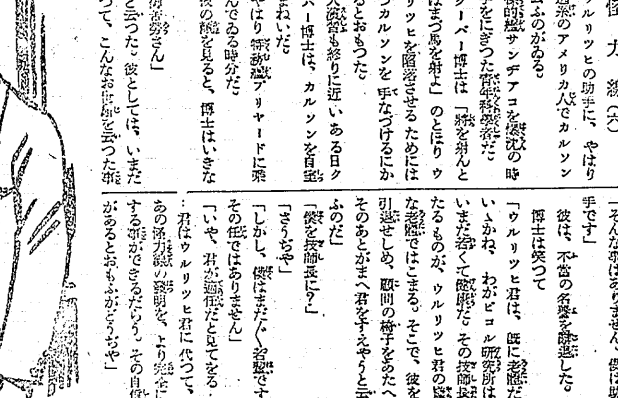 怪力線(六)
ルリツヒの助手に、やはり
アメリカ人でカルソン
云ふのがゐる。
的艦サンヂアコを爆沈の時
手をにぎつた青年科學者だ
クーバー博士は「將を射んと
はまづ馬を射よ」のとほり ウ
リツヒを陷落させる ためには
つカルソンを 手なづけるにか
るとおもつた。
大演習も終りに近い ある日 ク
バー博士は、カルソンを自室
まねいた。
やはり 特務艦ブリヤードに乘
んでゐる時分だ。
彼の顏を見ると、博士はいきな
苦勞さん」
と云つた。彼としては、いまだ
つて、こんなお世辭を云つた事
「そんな事はありません。僕は助
手です」
彼は、不當の名譽を辭退した。
博士は笑つて
「ウルリツヒ君は、既に老體だ
いゝかね、わがビコル研究所は
いまだ若くて健康だ。その技師長
たるものが、ウルリツヒ君の樣
な老體ではこまる。そこで、彼を
引退せしめ、顧問の椅子をあたへ
そのあとがまへ君をすえやうと云
ふのだ」
「僕を技師長に?」
「さうぢや」
「しかし、僕はまだ〳〵若輩です
その任ではありません」
「いや、君が適任だと見てをる。
君はウルリツヒ君に代つて、
あの怪力線の發明を、より完全に
する事ができるだらう。その自信
があるとおもふがどうぢや」